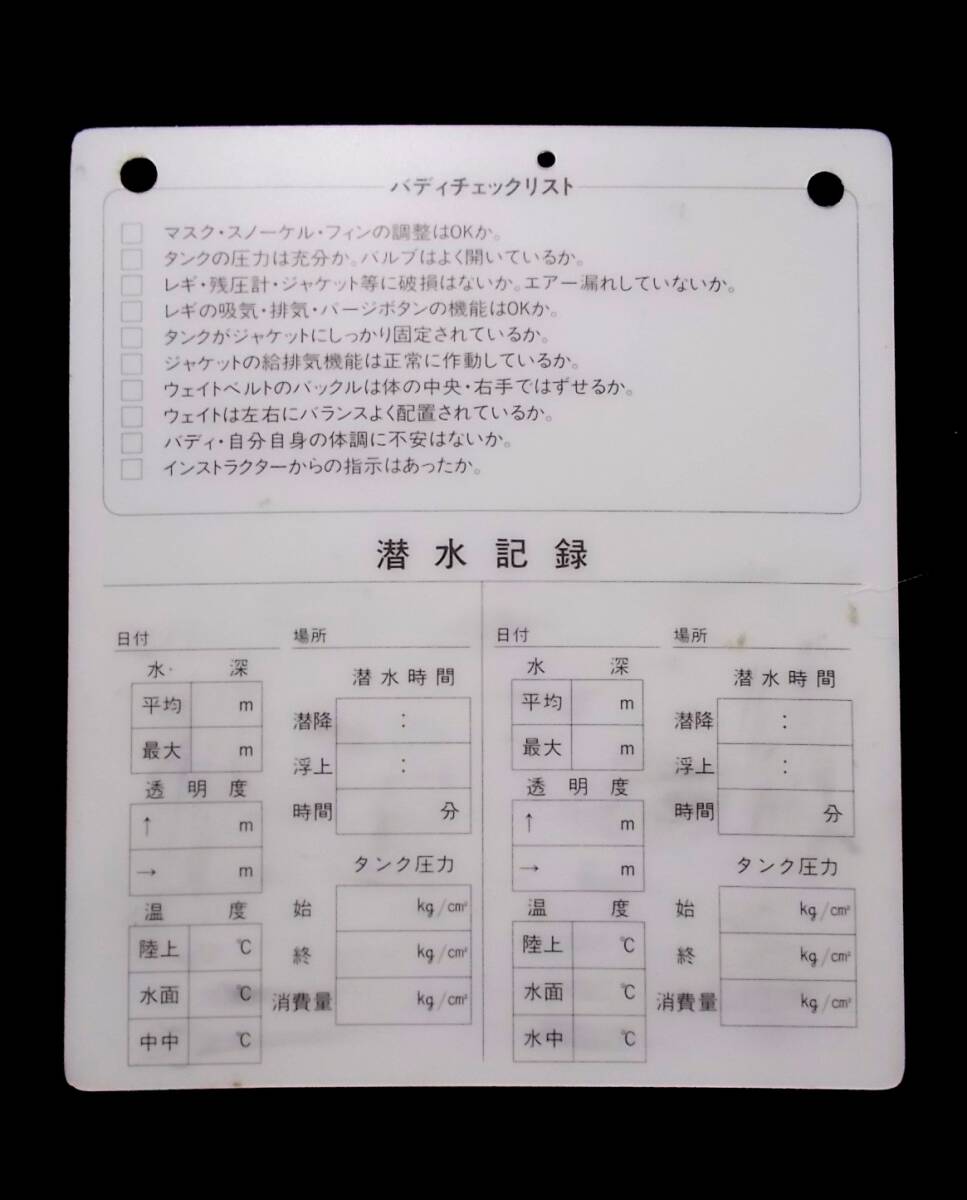 バディチェックリスト
□ マスク・スノーケル・フィンの調整はOKか。
□ タンクの圧力は充分か。バルブはよく開いているか。
□ レギ・残圧計・ジャケット等に破損はないか。エアー漏れしていないか。
□ レギの吸気・排気・パージボタンの機能はOKか。
□ タンクがジャケットにしっかり固定されているか。
□ ジャケットの給排気機能は正常に作動しているか。
□ ウェイトベルトのバックルは体の中央・右手ではずせるか。
□ ウェイトは左右にバランスよく配置されているか。
□ バディ・自分自身の体調に不安はないか。
□ インストラクターからの指示はあったか。
潜水記録
日付 場所
水・ 深
平均 m
最大 m
透明度
↑ m
→ m
温度
陸上 ℃
水面 ℃
中中 ℃
潜水時間
潜降 :
浮上 :
時間 分
タンク圧力
始 kg/cm²
終 kg/cm²
消費量 kg/cm²
日付 場所
水深
平均 m
最大 m
透明度
↑ m
→ m
温度
陸上 ℃
水面 ℃
水中 ℃
潜水時間
潜降 :
浮上 :
時間 分
タンク圧力
始 kg/cm²
終 kg/cm²
消費量 kg/cm²